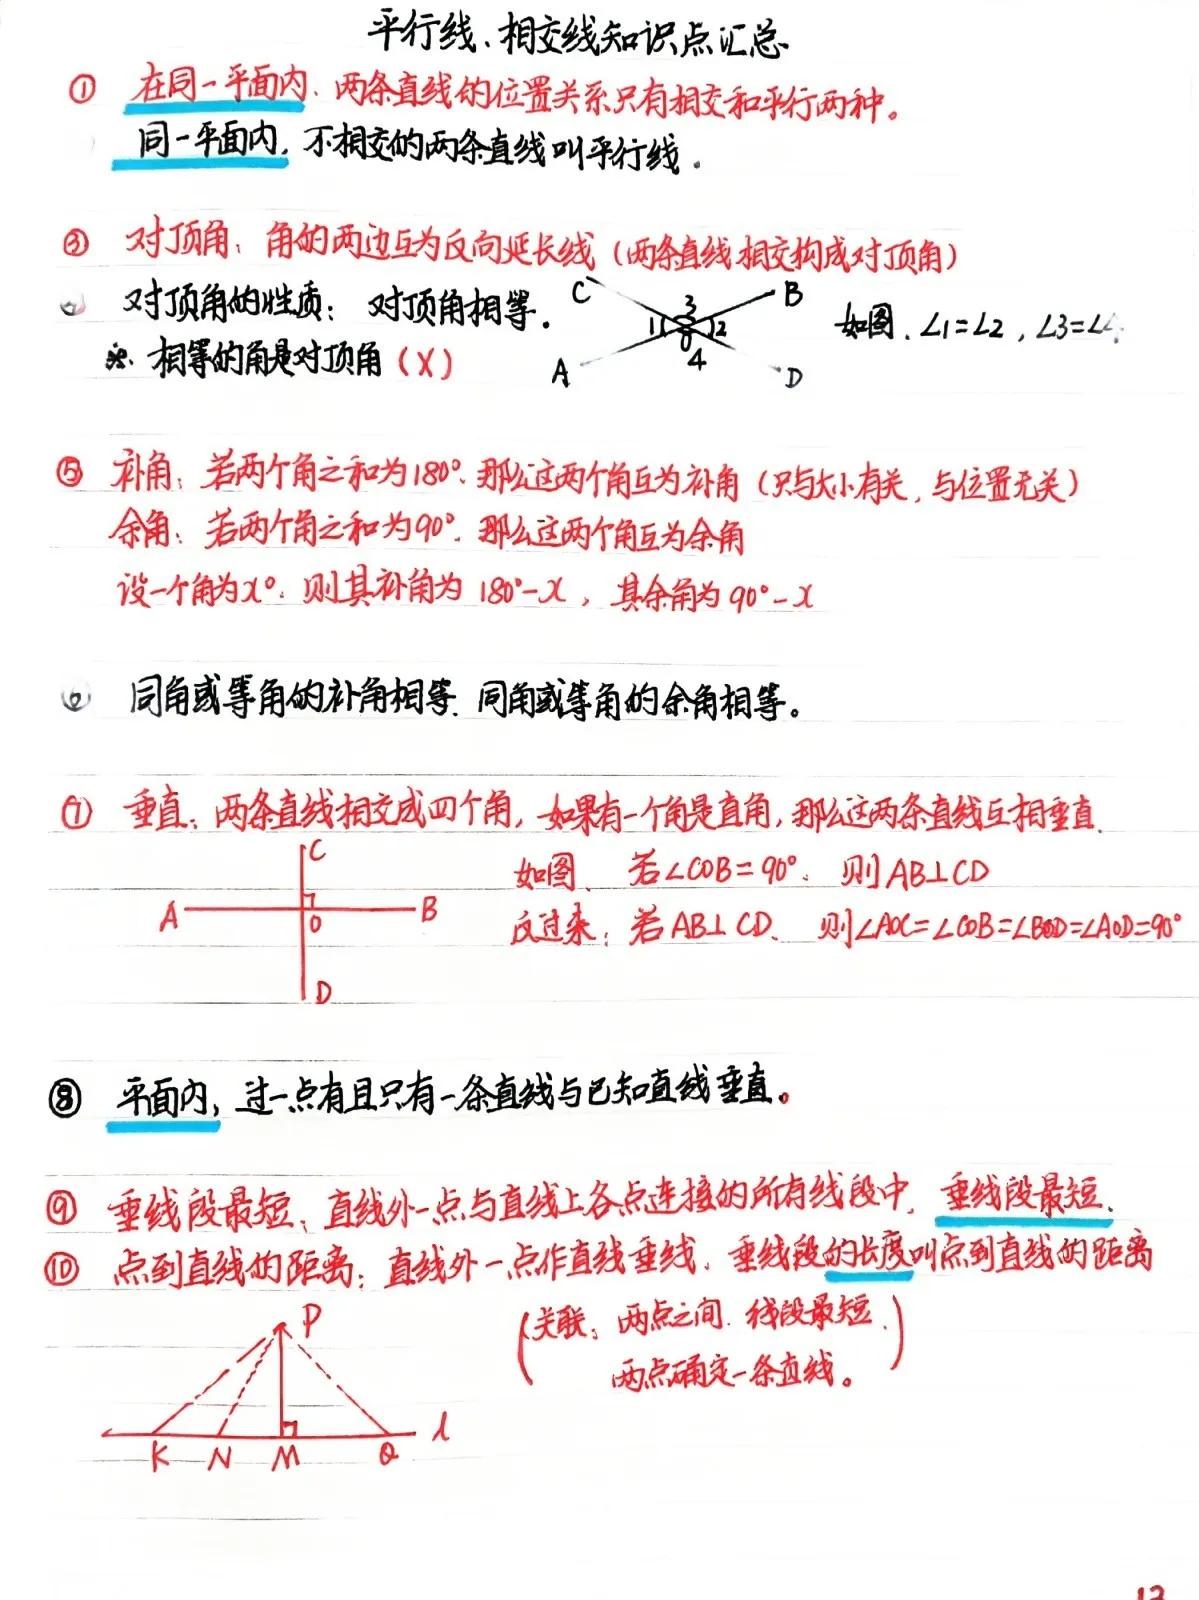 平行线、相交线知识点汇总
① 在同一平面内、两条直线的位置关系只有相交和平行两种。
同一平面内,不相交的两条直线叫平行线.
③ 对顶角:角的两边互为反向延长线(两条直线相交构成对顶角)
对顶角的性质:对顶角相等.
C B
3
1 2
4
A D
如图、∠1=∠2,∠3=∠4
※.相等的角是对顶角(X)
⑤ 补角:若两个角之和为180°、那么这两个角互为补角(只与大小有关,与位置无关)
余角:若两个角之和为90°、那么这两个角互为余角
设一个角为x°、则其补角为 180°-x,其余角为 90°-x
⑥ 同角或等角的补角相等、同角或等角的余角相等。
⑦ 垂直:两条直线相交成四个角,如果有一个角是直角,那么这两条直线互相垂直.
C
A B
O
D
如图、若∠COB=90°、则AB⊥CD
反过来:若AB⊥CD、则∠AOC=∠COB=∠BOD=∠AOD=90°
⑧ 平面内,过一点有且只有一条直线与已知直线垂直。
⑨ 垂线段最短:直线外一点与直线上各点连接的所有线段中,垂线段最短.
⑩ 点到直线的距离:直线外一点作直线垂线,垂线段的长度叫点到直线的距离
(关联:两点之间、线段最短.
两点确定一条直线。)
P
K N M Q l
13